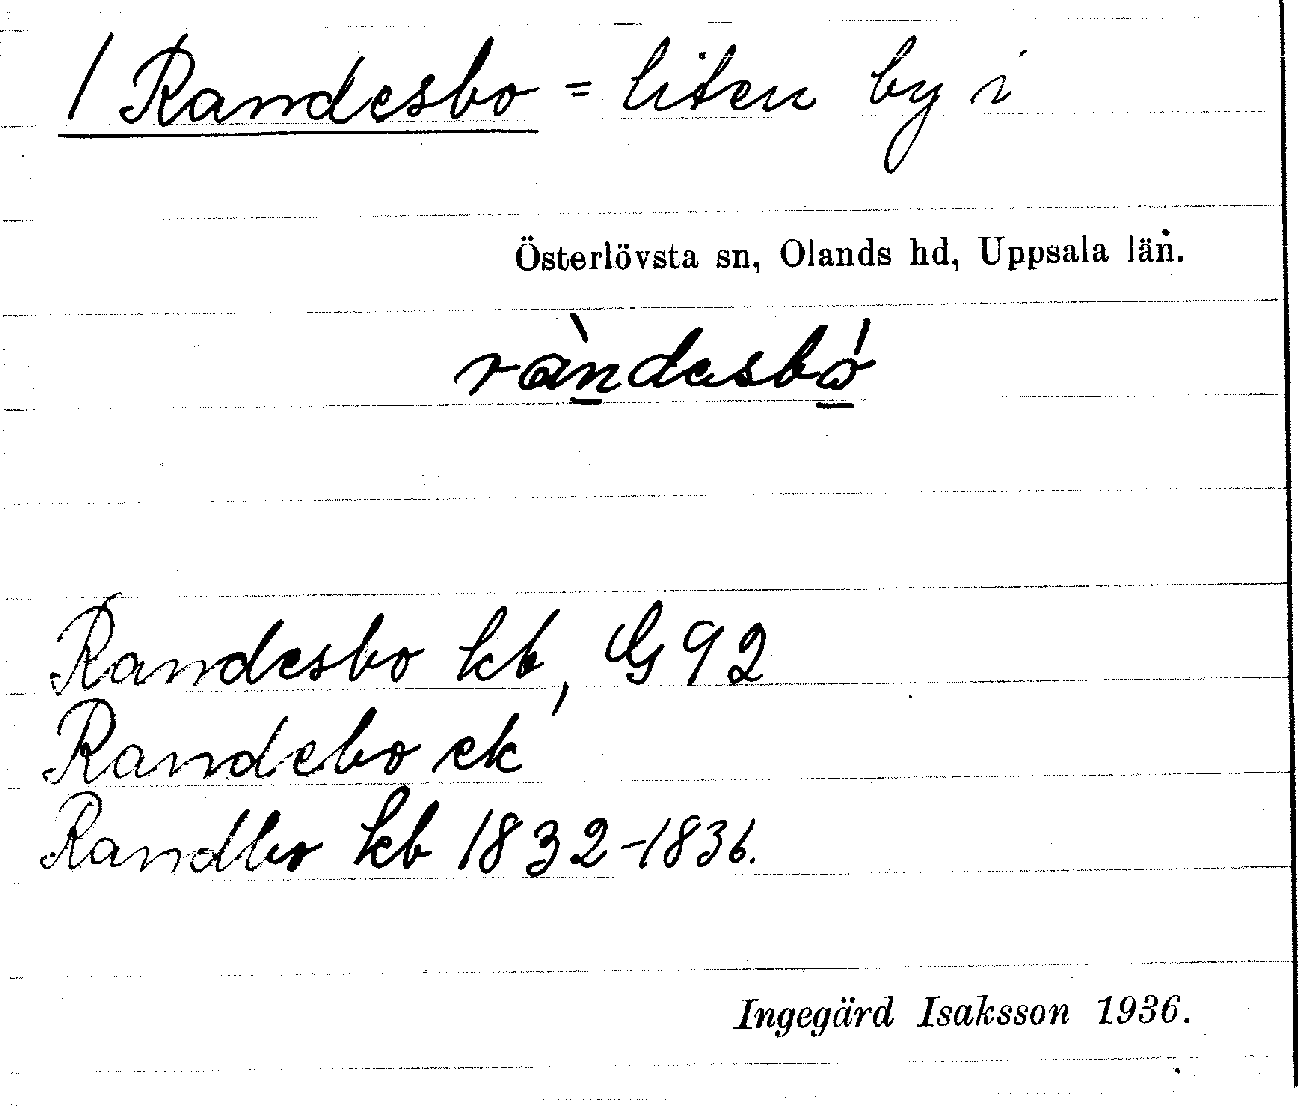 / Randesbo = liten by i
Österlövsta sn, Olands hd, Uppsala län.
ràndesbó
Randesbo kb, G 92
Randebo ek
Randbo kb 1832-1836.
Ingegärd Isaksson 1936.